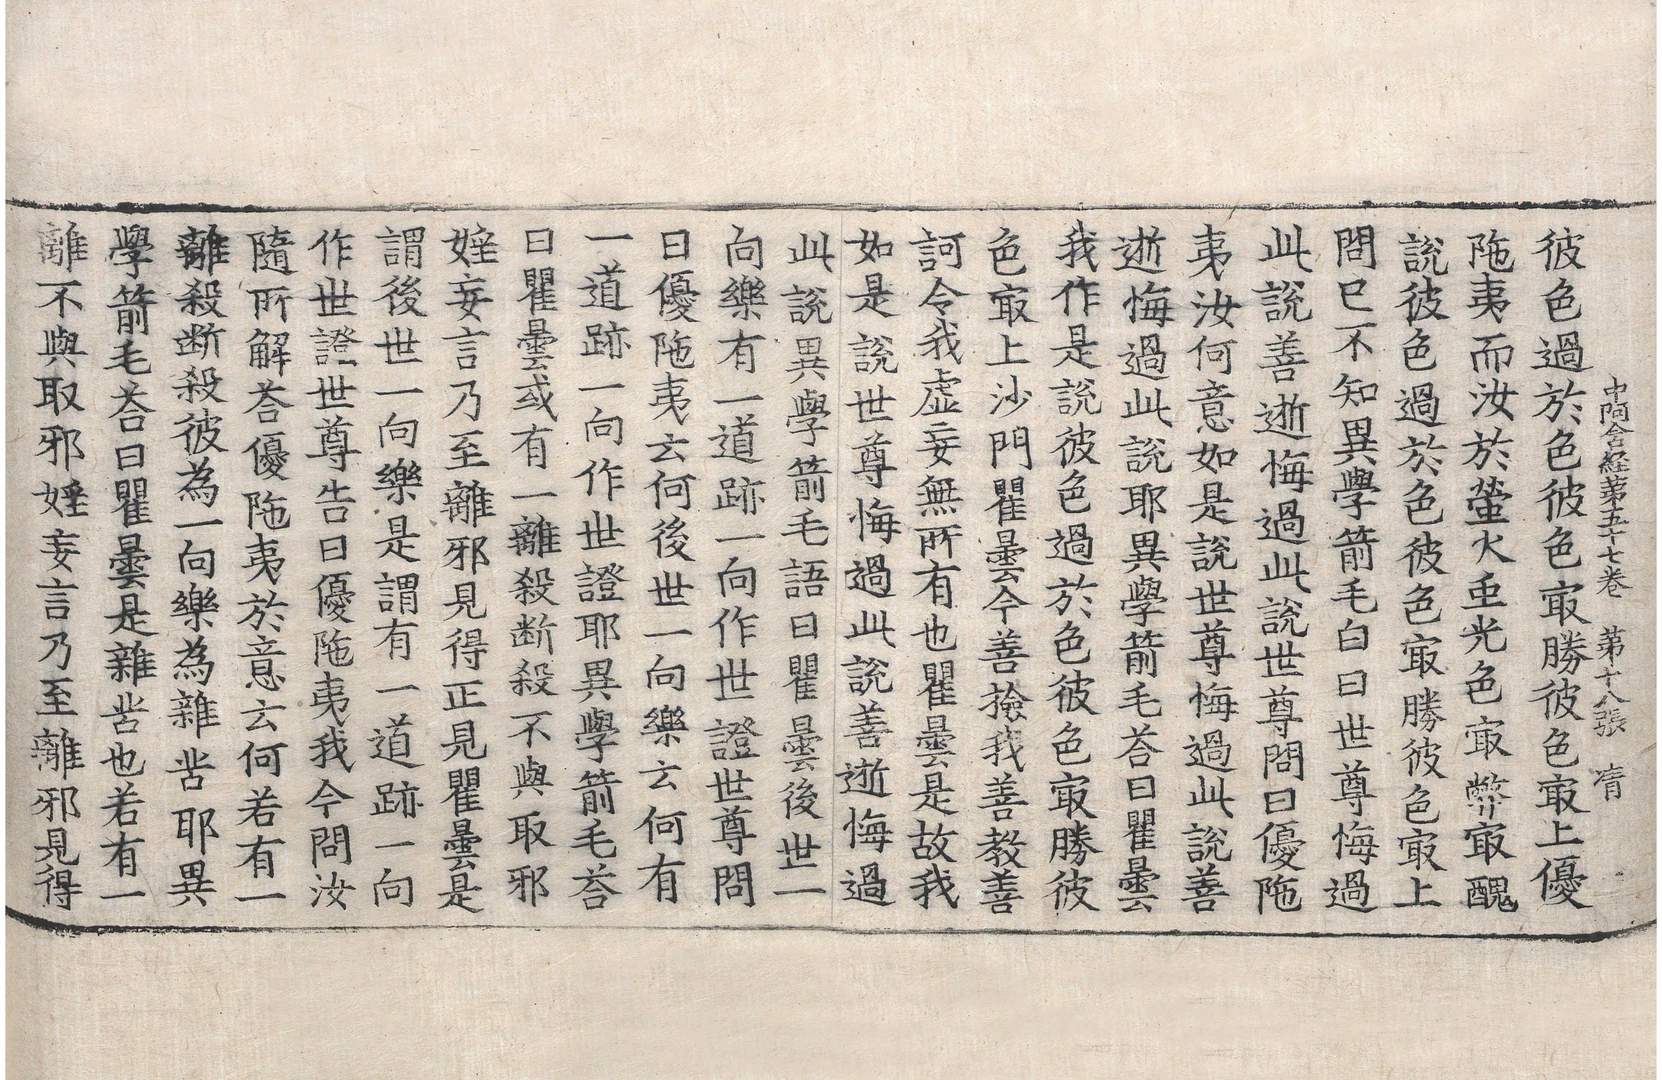 中阿含経第五十七卷 第十八張 凊
彼色過於色彼色㝡勝彼色㝡上優
陁夷而汝於螢火虫光色㝡弊㝡醜
說彼色過於色彼色㝡勝彼色㝡上
問已不知異學箭毛白曰世尊悔過
此說善逝悔過此說世尊問曰優陁
夷汝何意如是說世尊悔過此說善
逝悔過此說耶異學箭毛荅曰瞿曇
我作是說彼色過於色彼色㝡勝彼
色㝡上沙門瞿曇今善撿我善教善
訶令我虛妄無所有也瞿曇是故我
如是說世尊悔過此說善逝悔過
此說異學箭毛語曰瞿曇後世一
向樂有一道跡一向作世證世尊問
曰優陁夷云何後世一向樂云何有
一道跡一向作世證耶異學箭毛荅
曰瞿曇或有一離殺断殺不與取邪
婬妄言乃至離邪見得正見瞿曇是
謂後世一向樂是謂有一道跡一向
作世證世尊告曰優陁夷我今問汝
隨所解荅優陁夷於意云何若有一
離殺断殺彼為一向樂為雜苦耶異
學箭毛荅曰瞿曇是雜苦也若有一
離不與取邪婬妄言乃至離邪見得